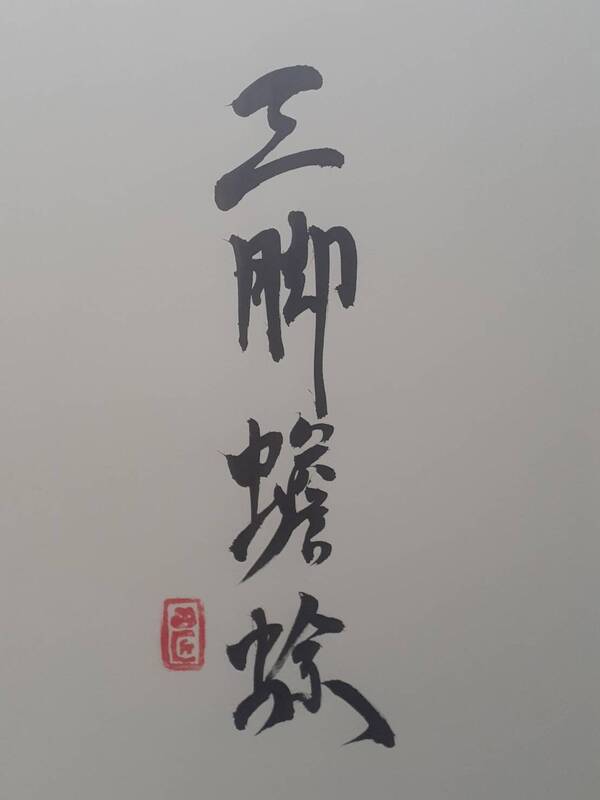 三脚蟾蜍